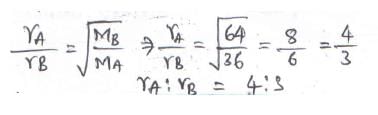 r_A/r_B = √(M_B/M_A) ⇒ r_A/r_B = √(64/36) = 8/6 = 4/3
r_A : r_B = 4:3